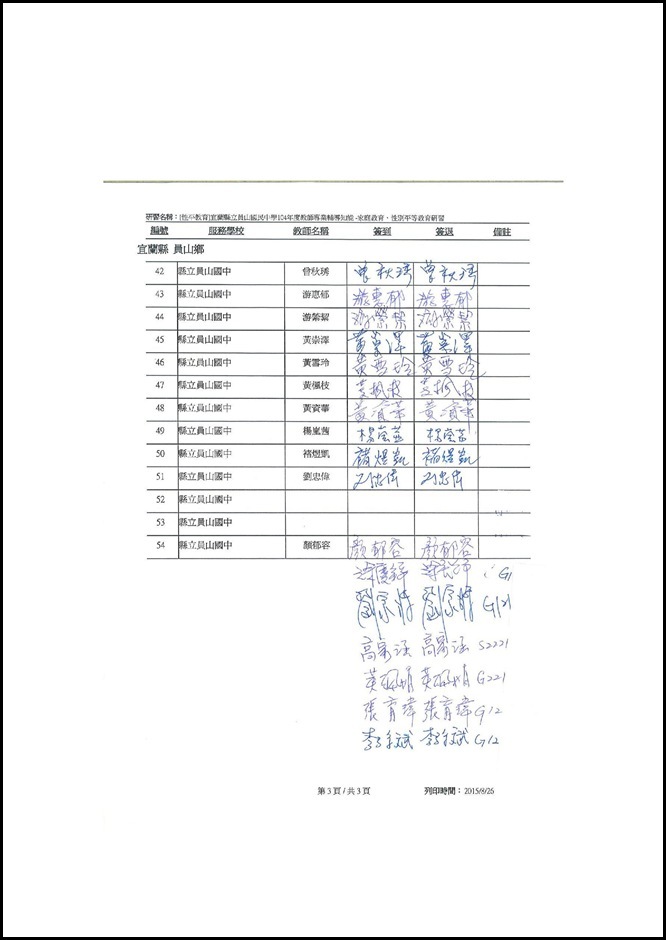 研習名稱：[性平教育]宜蘭縣立員山國民中學104年度教師專業輔導知能-家庭教育、性別平等教育研習
編號 服務學校 教師名稱 簽到 簽退 備註
宜蘭縣 員山鄉
42 縣立員山國中 曾秋琇 曾秋琇 曾秋琇
43 縣立員山國中 游惠郁 游惠郁 游惠郁
44 縣立員山國中 游縈絜 游縈絜 游縈絜
45 縣立員山國中 黃崇澤 黃崇澤 黃崇澤
46 縣立員山國中 黃雪玲 黃雪玲 黃雪玲
47 縣立員山國中 黃佩枝
48 縣立員山國中 黃資華 黃資華 黃資華
49 縣立員山國中 楊嵐茵
50 縣立員山國中 褚煜凱 褚煜凱 褚煜凱
51 縣立員山國中 劉忠偉 刘忠偉 刘忠偉
52 縣立員山國中
53 縣立員山國中
54 縣立員山國中 顏郁容 顏郁容 顏郁容
G1
G121
S2221
G221
張育瑋 張育瑋 G12
G12
第 3 頁 / 共 3 頁 列印時間：2015/8/26